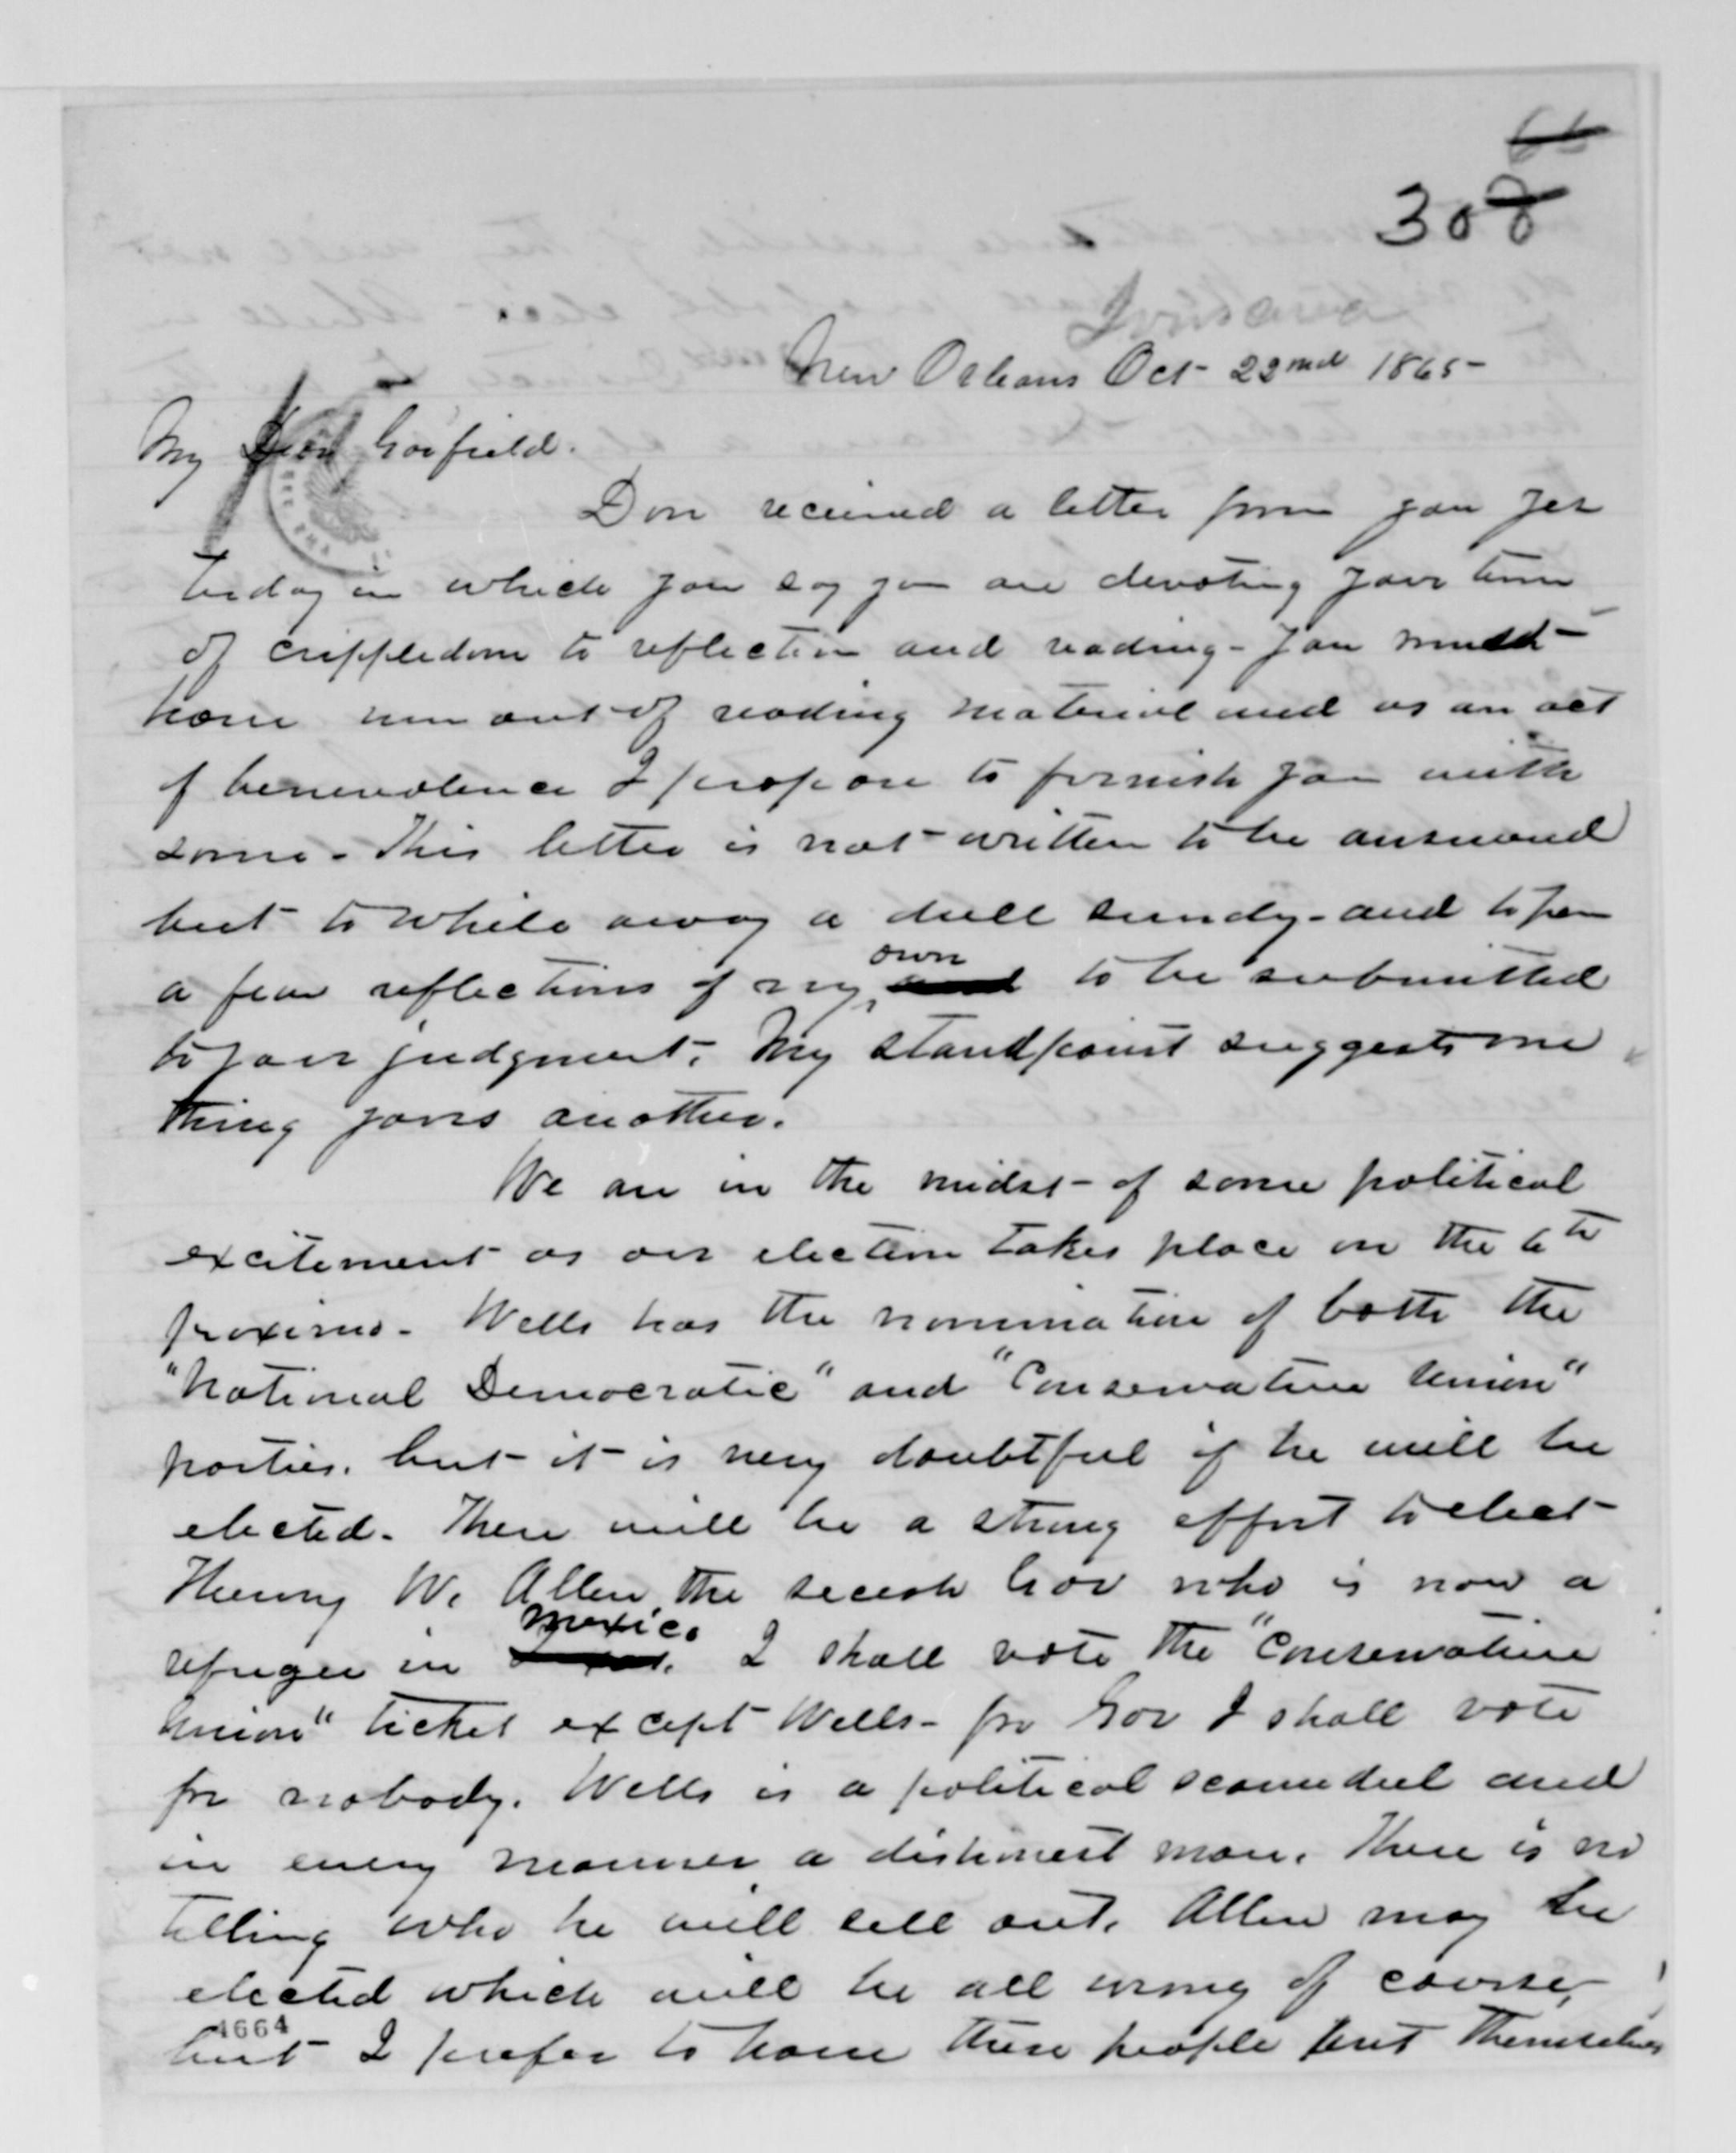 308
Louisiana
New Orleans Oct- 22nd 1865-
My Dear Garfield.
Don received a letter from you yes
terday in which you say you are devoting your time
of crippledom to reflection and reading- You must
have run out of reading material and as an act
of benevolence I propose to furnish you with
some- This letter is not written to be answered
but to while away a dull Sunday- and to pen
a few reflections of my own to be submitted
to your judgment. My standpoint suggests one
thing yours another.
We are in the midst- of some political
excitement as our election takes place on the 6th
proximo- Wells has the nomination of both the
"National Democratic" and "Conservative Union"
parties. but it is very doubtful if he will be
elected. There will be a strong effort to elect
Henry W. Allen, the secesh Gov who is now a
refugee in Mexico I shall vote the "Conservative
Union" ticket except Wells- for Gov I shall vote
for nobody. Wells is a political scoundrel and
in every manner a dishonest man. There is no
telling who he will sell out. Allen may be
elected which will be all wrong of course,
4664
but I prefer to have these people put themselves